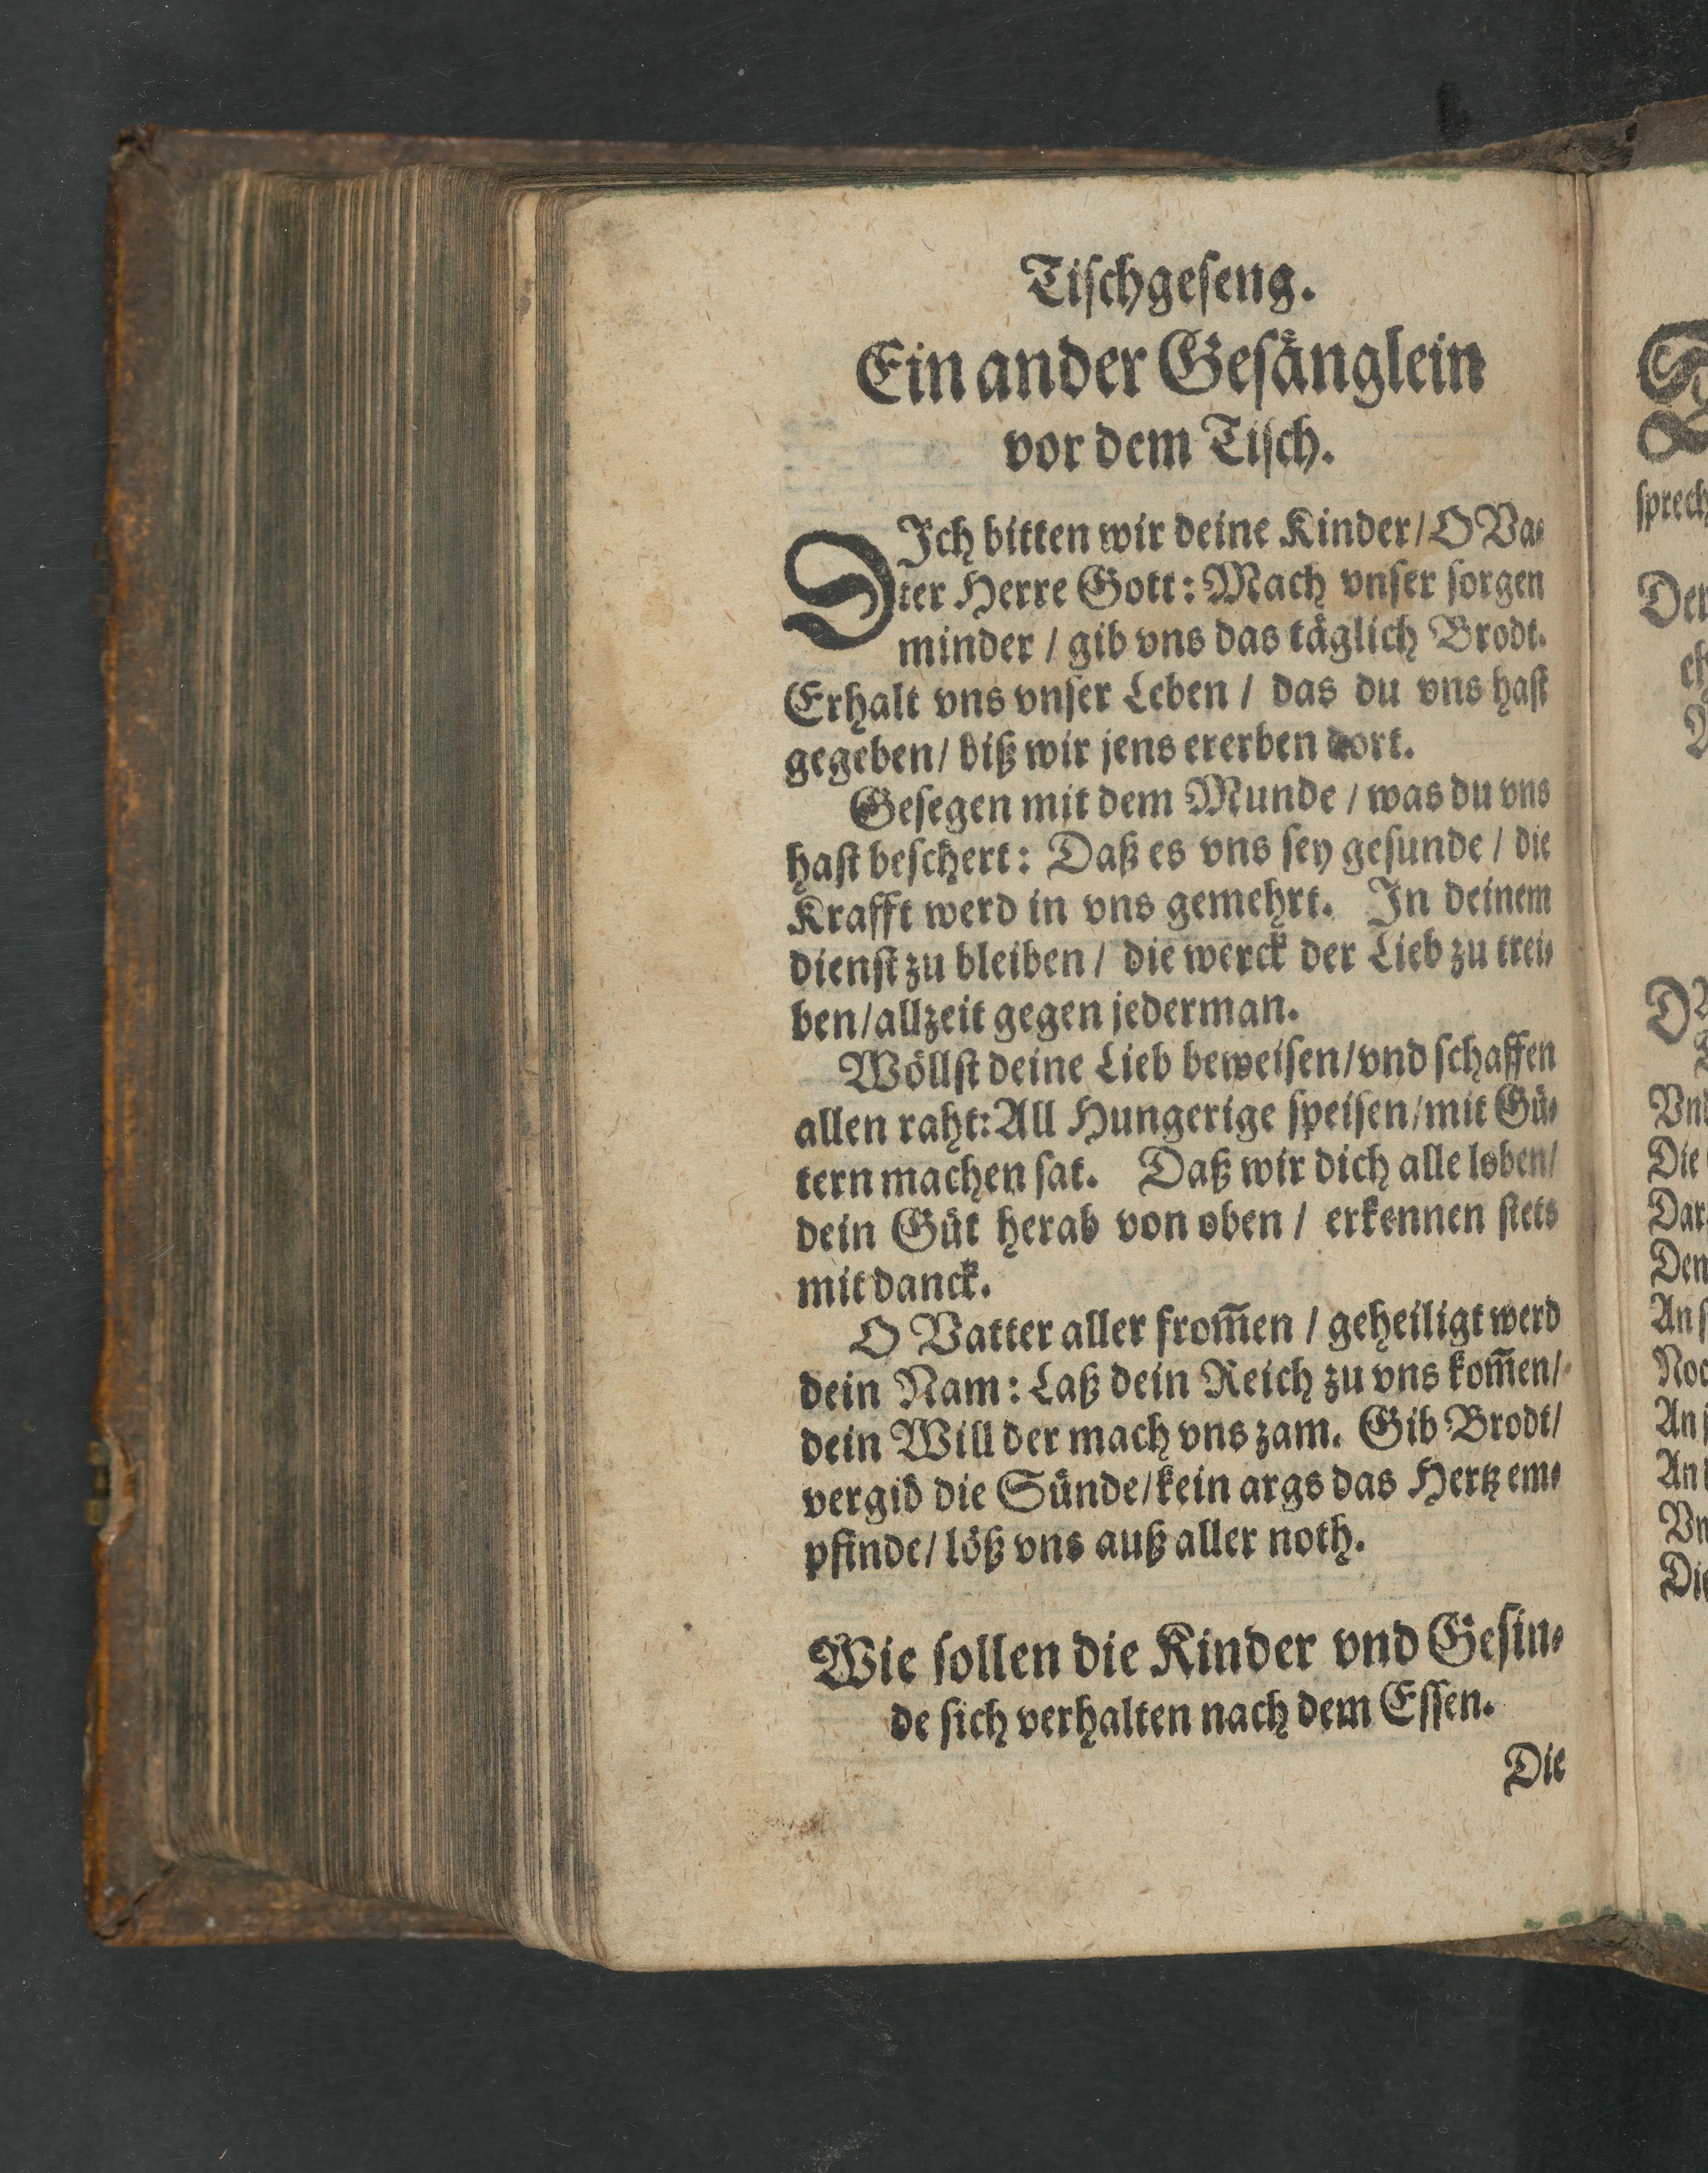 Tischgeseng.
Ein ander Gesänglein
vor dem Tisch.
DIch bitten wir deine Kinder/ O Va-
ter Herre Gott: Mach vnser sorgen
minder / gib vns das täglich Brodt.
Erhalt vns vnser Leben / das du vns hast
gegeben/ biß wir jens ererben dort.
Gesegen mit dem Munde / was du vns
hast beschert: Daß es vns sey gesunde / die
Krafft werd in vns gemehrt. In deinem
dienst zu bleiben / die werck der Lieb zu trei-
ben/allzeit gegen jederman.
Wöllst deine Lieb beweisen/vnd schaffen
allen raht: All Hungerige speisen/mit Gü-
tern machen sat. Daß wir dich alle loben/
dein Güt herab von oben / erkennen stets
mit danck.
O Vatter aller from̃en / geheiligt werd
dein Nam: Laß dein Reich zu vns kom̃en/
dein Will der mach vns zam. Gib Brodt/
vergib die Sünde/kein args das Hertz em-
pfinde/ löß vns auß aller noth.
Wie sollen die Kinder vnd Gesin-
de sich verhalten nach dem Essen.
Die
sprech
Der
Vnd
Die
Dar
Den
An s
Noc
An s
An
Vn
Die